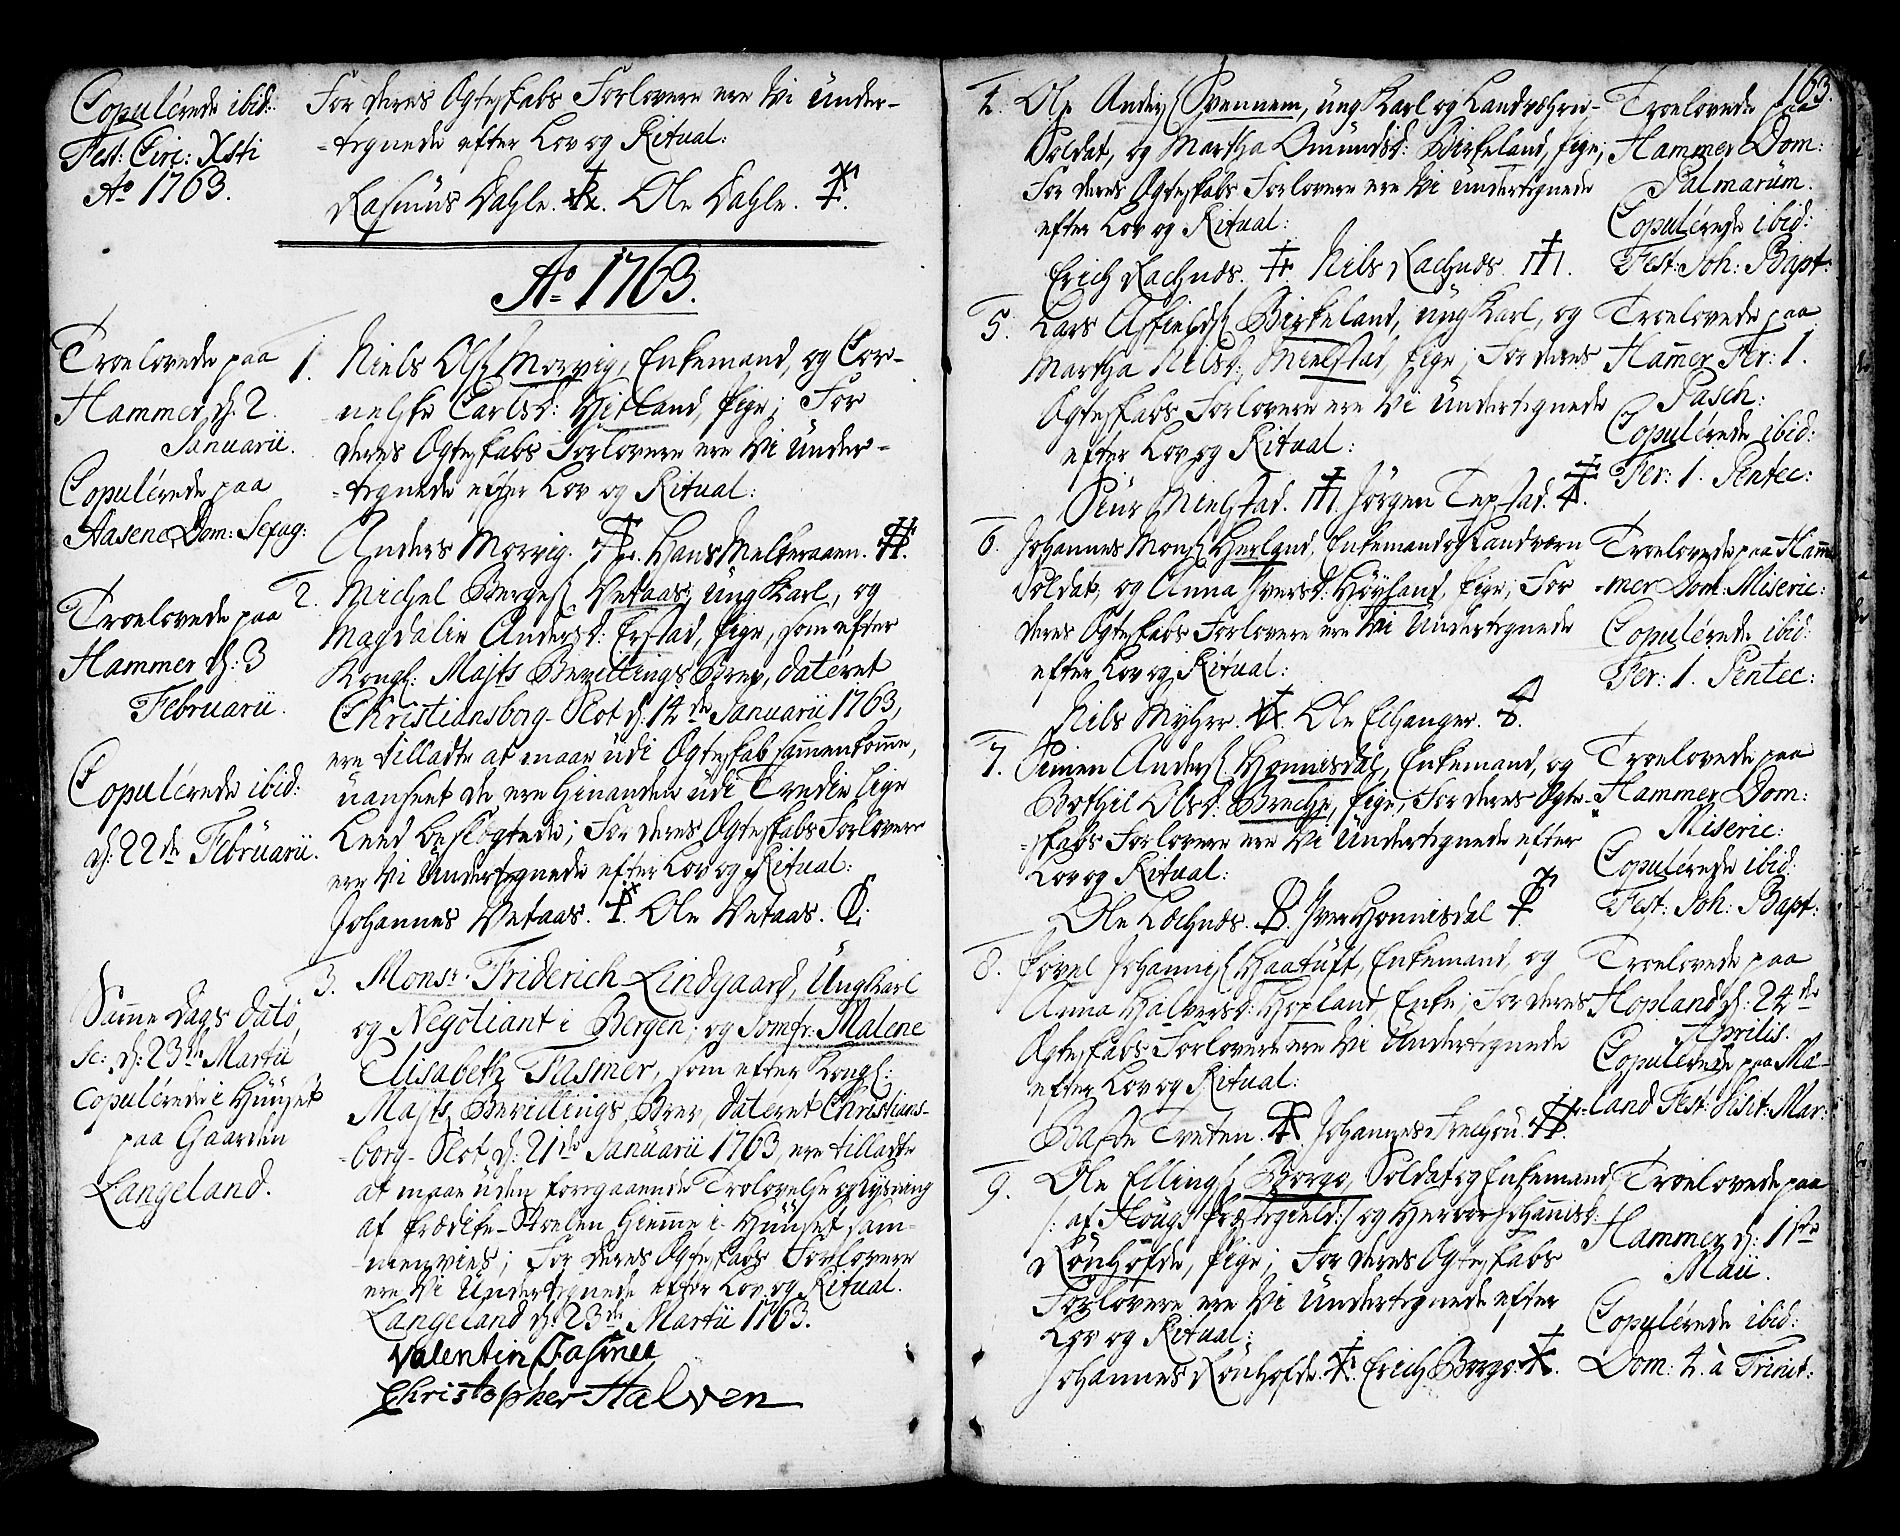 Copulérede ibid:
Fest: Circ: Xsti
Aº 1763.
For deres Ægteskabs Forlovere ere Vi under-
-tegnede efter Lov og Ritual:
Rasmus Dahle. Ole Dahle.
Aº 1763.
Troelovede paa
Hammer, d. 2.
Januarii.
Copulérede paa
Aasene, Dom: Sexag:
1. Niels Ols: Morvig, Enkemand, og Cor-
-nelske Carlsd: Hitland, Pige; For
deres Ægteskabs Forlovere ere Vi under-
-tegnede efter Lov og Ritual:
Anders Morvig. Hans Melkeraaen.
Troelovede paa
Hammer d: 3
Februarii.
Copulérede ibid:
d: 22de Februarii.
2. Michel Berges: Vetaas, ung Karl, og
Magdalie Andersd: Erstad, Pige, som efter
Kongl: Majts Bevillings Brev, datéret
Christiansborg-Slot d: 14de Januarii 1763,
ere tilladte at maae udi Ægteskab sammenkomme,
uanseet de ere hinanden udi Tredie lige
Leed beslægtede; For deres Ægteskabs Forlovere
ere Vi Undertegnede efter Lov og Ritual:
Johannes Vetaas. Ole Vetaas.
Samme Dags Dato,
sc: d: 23de Martii
copulérede i Huuset
paa Gaarden
Langeland.
3. Monsr. Friderich Lindgaard, Ung Karl
og Negotiant i Bergen; og Jomfr: Malene
Elisabeth Fasmer, som efter Kongl:
Majts Bevillings Brev, datéret Christians-
-borg-Slot d: 21de Januarii 1763, ere tilladte
at maae uden foregaaende Trolovelse og Lysning
af Prædike-Stoelen hiemme i Huuset sam-
-menvies; For deres Ægteskabs Forlovere
ere Vi Undertegnede efter Lov og Ritual.
Langeland d: 23de Martii 1763.
Valentin Fasmer
Christopher Halven
163.
4. Ole Anders: Svennem, ung Karl og Landværn-
Soldat, og Martha Omundsd: Birkeland, Pige;
For deres Ægteskabs Forlovere ere Vi undertegnede
efter Lov og Ritual:
Erich Nils
Troelovede paa
Hammer Dom:
Palmarum.
Copulérede ibid:
Fest: Joh: Bapt:
5. Lars Birkeland, ung Karl, og
Martha Nilsd: Mielstad, Pige; For deres
Ægteskabs Forlovere ere Vi Undertegnede
efter Lov og Ritual:
Siur Mielstad. Jørgen Tepstad.
Troelovede paa
Hammer Fer: 1.
Pasch:
Copulérede ibid:
Fer: 1. Pentec:
6. Johannes Mons: Herland, Enkemand og Landværn
Soldat, og Anna Iversd: Høyland, Pige; For
deres Ægteskabs Forlovere ere Vi Undertegnede
efter Lov og Ritual:
Nils Myhre. Ole Echanger.
Troelovede paa Ham-
-mer Dom: Miseric:
Copulérede ibid:
Fer: 1. Pentec:
7. Simen Anders: Honnisdal, Enkemand, og
Bothil Olsd: Brecke, Pige; For deres Ægte-
-skabs Forlovere ere Vi Undertegnede efter
Lov og Ritual:
Ole Iver Honnisdal
Troelovede paa
Hammer Dom:
Miseric:
Copulérede ibid:
Fest: Joh: Bapt:
8. Povel Johannis: Haatuft, Enkemand, og
Anna Halversd: Hopland, Enke; For deres
Ægteskabs Forlovere ere Vi Undertegnede
efter Lov og Ritual:
Tveten. Johannes
Troelovede paa
Hopland d: 24de
Aprilis.
Copulérede paa Mæ-
-land Fest: Visit: Mar:
9. Ole Ellings: Borge, Soldat og Enkemand
/: af Hougs Præstegield :/ og Herbor Johannisd:
Rønhofde, Pige; For deres Ægteskabs
Forlovere ere Vi Undertegnede efter
Lov og Ritual:
Johannes Rønhofde. Erich Borge.
Troelovede paa
Hammer d: 1ste
Maii.
Copulérede ibid:
Dom: 4. à Trinit: